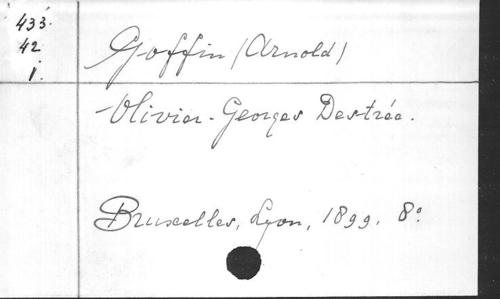 433.
42
i.
Goffin (Arnold)
Olivier-Georges Destrée.
Bruxelles, Lyon, 1899. 8°.